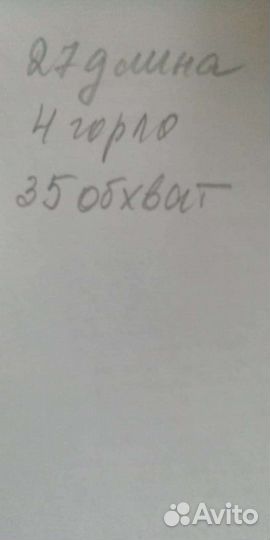 27 длина
4 горло
35 обхват
Avito